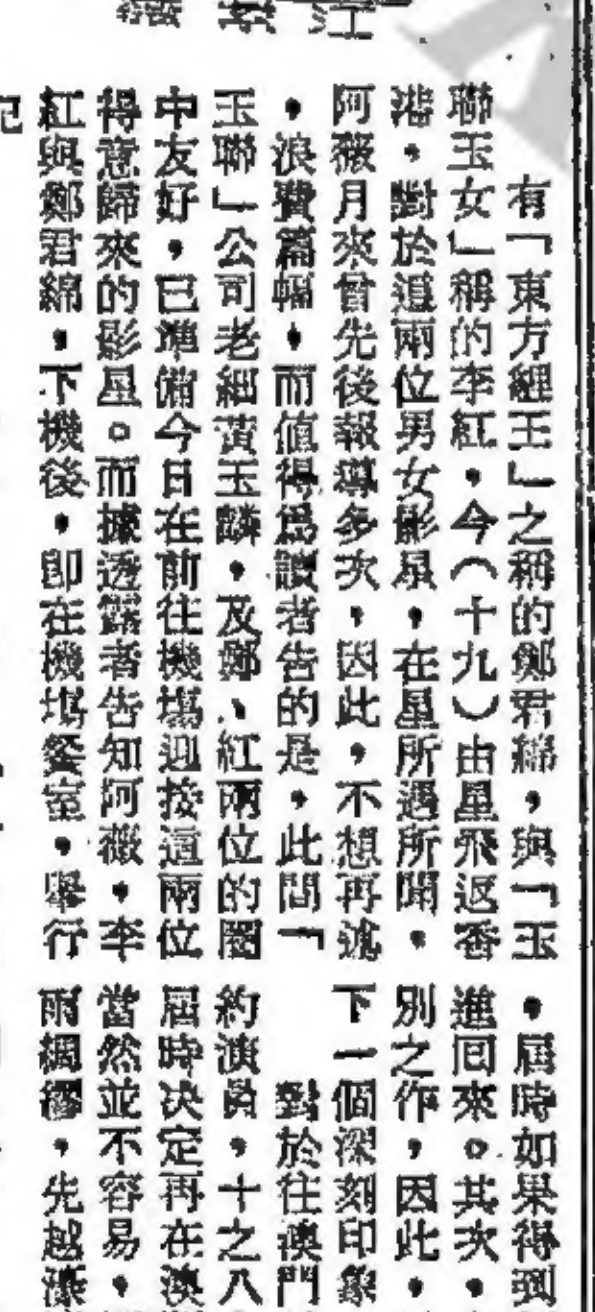 有「東方貓王」之稱的鄭君綿，與「玉
聯玉女」稱的李紅，今（十九）由星飛返香
港，對於這兩位男女影星，在星所遇所聞，
阿薇月來曾先後報導多次，因此，不想再述
，浪費篇幅，而值得為讀者告的是，此間「
玉聯」公司老細黃玉麟，及鄭、紅兩位的圈
中友好，已準備今日在前往機場迎接這兩位
得意歸來的影星。而據透露者告知阿薇，李
紅與鄭君綿，下機後，即在機場餐室，舉行
記
，屆時如果得到
進回來。其次，
別之作，因此，
下一個深刻印象
對於往澳門
約演員，十之八
屆時決定再在澳
當然並不容易，
雨綢繆，先越濠